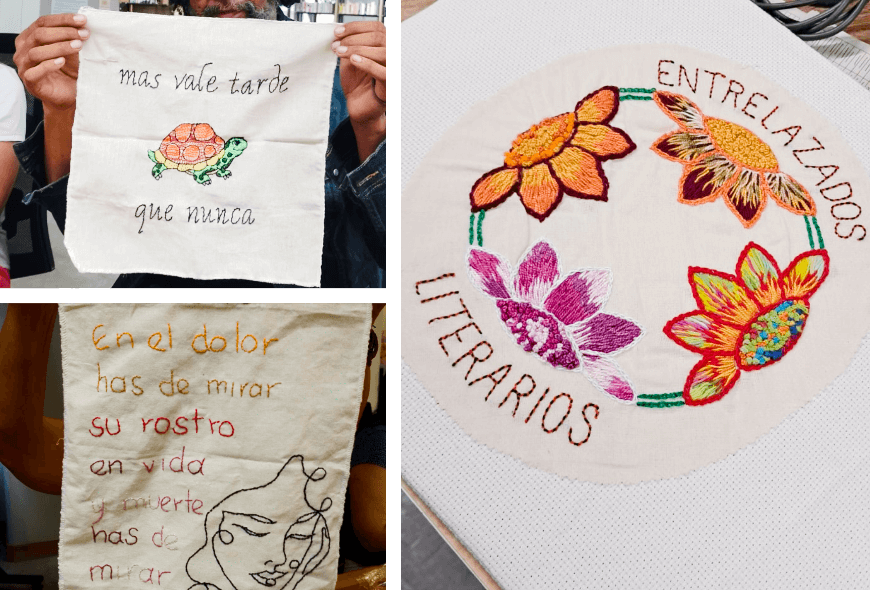 mas vale tarde
que nunca
En el dolor
has de mirar
su rostro
en vida
y muerte
has de
mirar
ENTRELAZADOS
LITERARIOS